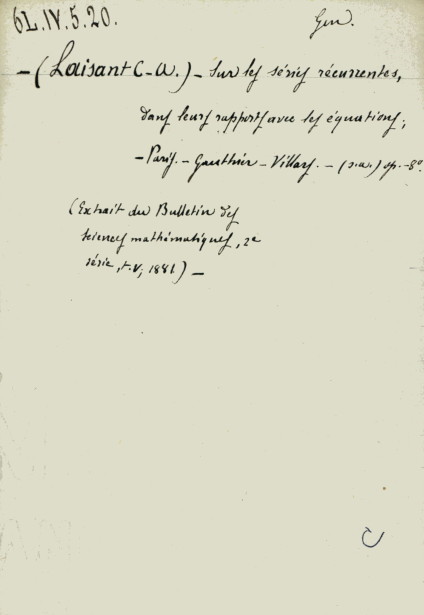 6L.IV.5.20.
Gen.
— (Laisant C-A.) — Sur les séries récurrentes,
dans leurs rapports avec les équations;
— Paris. — Gauthier - Villars. — (s.a.) op. - 8°.
(Extrait du Bulletin des
sciences mathématiques, 2e
série, t. V; 1881.) —